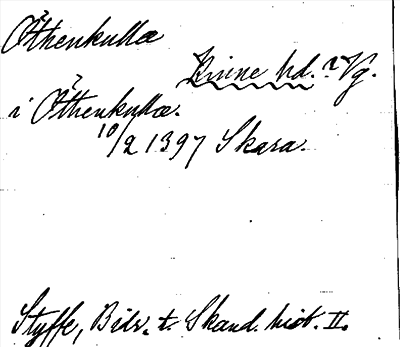 Öthenkulla
Kinne hd. i Vg.
i Öthenkulla.
10/2 1397 Skara.
Styffe, Bidr. t. Skand. hist. II.